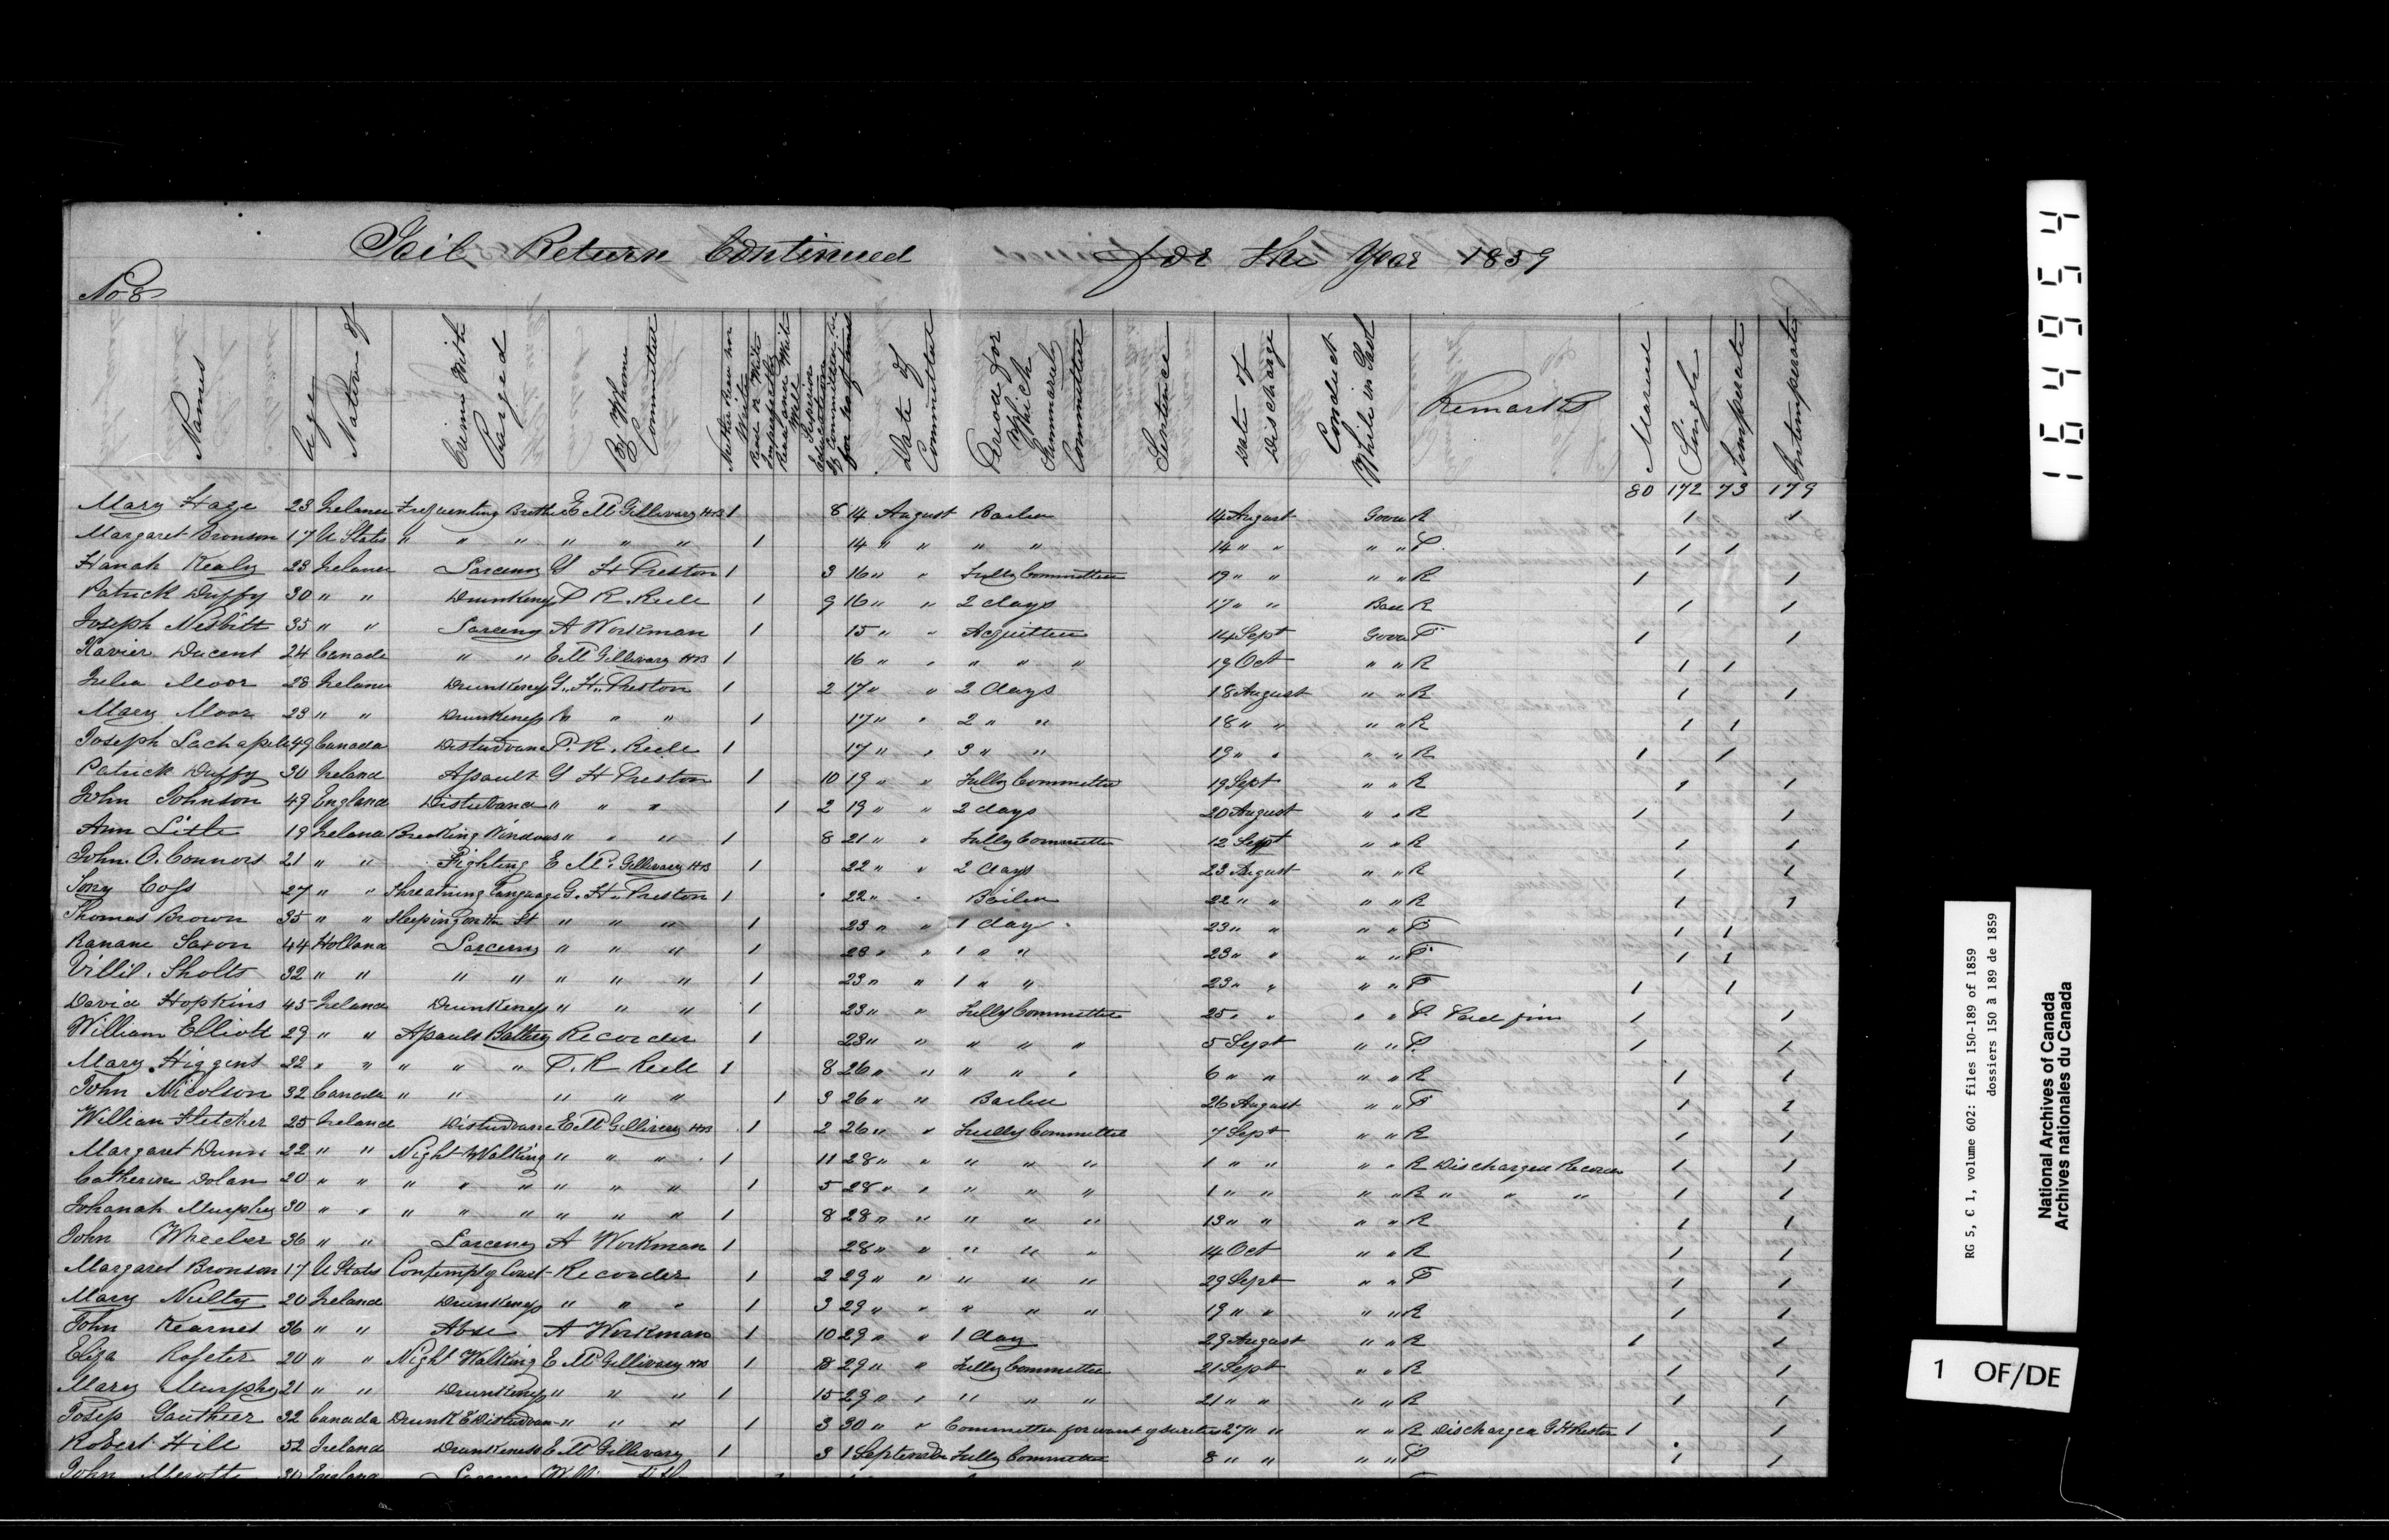 Goil Return Continued for the Year 1859
No 8
Names Age Native of Crime With Charged By Whome Committed Neither Read nor Write Read or Write Imperfectly Read and Write Well Superior Education Date of Committal Period for Which Summarily Committed Sentence Date of Discharge Conduct While in Gaol Remarks Married Single Temperate Intemperate
80 172 73 179
Mary Haze 23 Ireland Frequenting Brothe E McGillivary HB 1 8 14 August Bailed 14 August Good R 1 1
Margaret Bronson 17 U States " " " " " " 1 14 " " " " 14 " " " " P. 1 1
Hanah Kealy 23 Ireland Larceny G H Preston 1 3 16 " " Fully Committed 19 " " " " R 1 1
Patrick Duffy 30 " " Drunkeness P R Reele 1 9 16 " " 2 days 17 " " Bad R 1 1
Joseph Nesbitt 35 " " Larceny A Workman 1 15 " " Acquitted 14 Sept Good P 1 1
Xavier Ducent 24 Canada " " E McGillivary HB 1 16 " " " " " 19 Oct " " R 1 1
Julia Moor 28 Ireland Drunkeness G. H. Preston 1 2 17 " " 2 days 18 August " " R 1 1
Mary Moor 23 " " Drunkeness " " " 1 17 " " 2 " " 18 " " " " R 1 1
Joseph Lachapele 49 Canada Disturbance P. R. Reele 1 17 " " 3 " " 19 " " " " R 1 1
Patrick Duffy 30 Ireland Assault G H Preston 1 10 19 " " Fully Committed 19 Sept " " R 1 1
John Johnson 49 England Disturbance " " " 1 2 19 " " 2 days 20 August " " R 1 1
Ann Litle 19 Ireland Breaking Windows " " " 1 8 21 " " Fully Committed 12 Sept " " R 1 1
John O. Connors 21 " " Fighting E Mc. Gillivary HB 1 22 " " 2 days 23 August " " R 1 1
Coss 27 " " Threatning Language G. H. Preston 1 22 " " Bailed 22 " " " " R 1 1
Thomas Brown 35 " " Sleeping on the St " " " 1 23 " " 1 day 23 " " " " P 1 1
Saxon 44 Holland Larceny " " " 1 23 " " 1 " " 23 " " " " P 1 1
Sholts 32 " " " " " " " 1 23 " " 1 " " 23 " " " " P 1 1
David Hopkins 45 Ireland Drunkeness " " " 1 23 " " Fully Committed 25 " " " " P. Paid fine 1 1
William Elliott 29 " " Assault Battery Recorder 1 23 " " " " " 5 Sept " " P. 1 1
Mary Higgens 22 " " " " " P. R Reele 1 8 26 " " " " " 6 " " " " R 1 1
John Nicolson 32 Canada " " " " " 1 3 26 " " Bailed 26 August " " P 1 1
William Fletcher 25 Ireland Disturbance E McGillivary HB 1 2 26 " " Fully Committed 7 Sept " " R 1 1
Margaret Dunn 22 " " Night Walking " " " 1 11 28 " " " " " 1 " " " " R Discharged Recorder 1 1
Catherine Dolan 20 " " " " " " " " 1 5 28 " " " " " 1 " " " " R " " " 1 1
Johanah Murphy 30 " " " " " " " " 1 8 28 " " " " " 13 " " " " R 1 1
John Wheeler 36 " " Larceny A Workman 1 28 " " " " " 14 Oct " " R 1 1
Margaret Bronson 17 U States Contempt of Court Recorder 1 2 29 " " " " " 29 Sept " " P 1 1
Mary Nulty 20 Ireland Drunkeness " " " 1 3 29 " " " " " 19 " " " " R 1 1
John Kearnes 36 " " Abuse A Workman 1 10 29 " " 1 day 29 August " " R 1 1
Eliza Rosseter 20 " " Night Walking E McGillivary HB 1 8 29 " " Fully Committed 21 Sept " " R 1 1
Mary Murphy 21 " " Drunkeness " " " 1 15 29 " " " " " 21 " " " " R 1 1
Josep Gauthier 32 Canada Drunk & Disturban " " " 1 3 30 " " Committed for want of securities 27 " " " " R Discharged G H Preston 1 1
Robert Hill 52 Ireland Drunkeness E McGillivary 1 3 1 September Fully Committed 8 " " " " P 1 1
John England
164954
RG 5, C 1, volume 602: files 150-189 of 1859
dossiers 150 à 189 de 1859
National Archives of Canada
Archives nationales du Canada
1 OF/DE